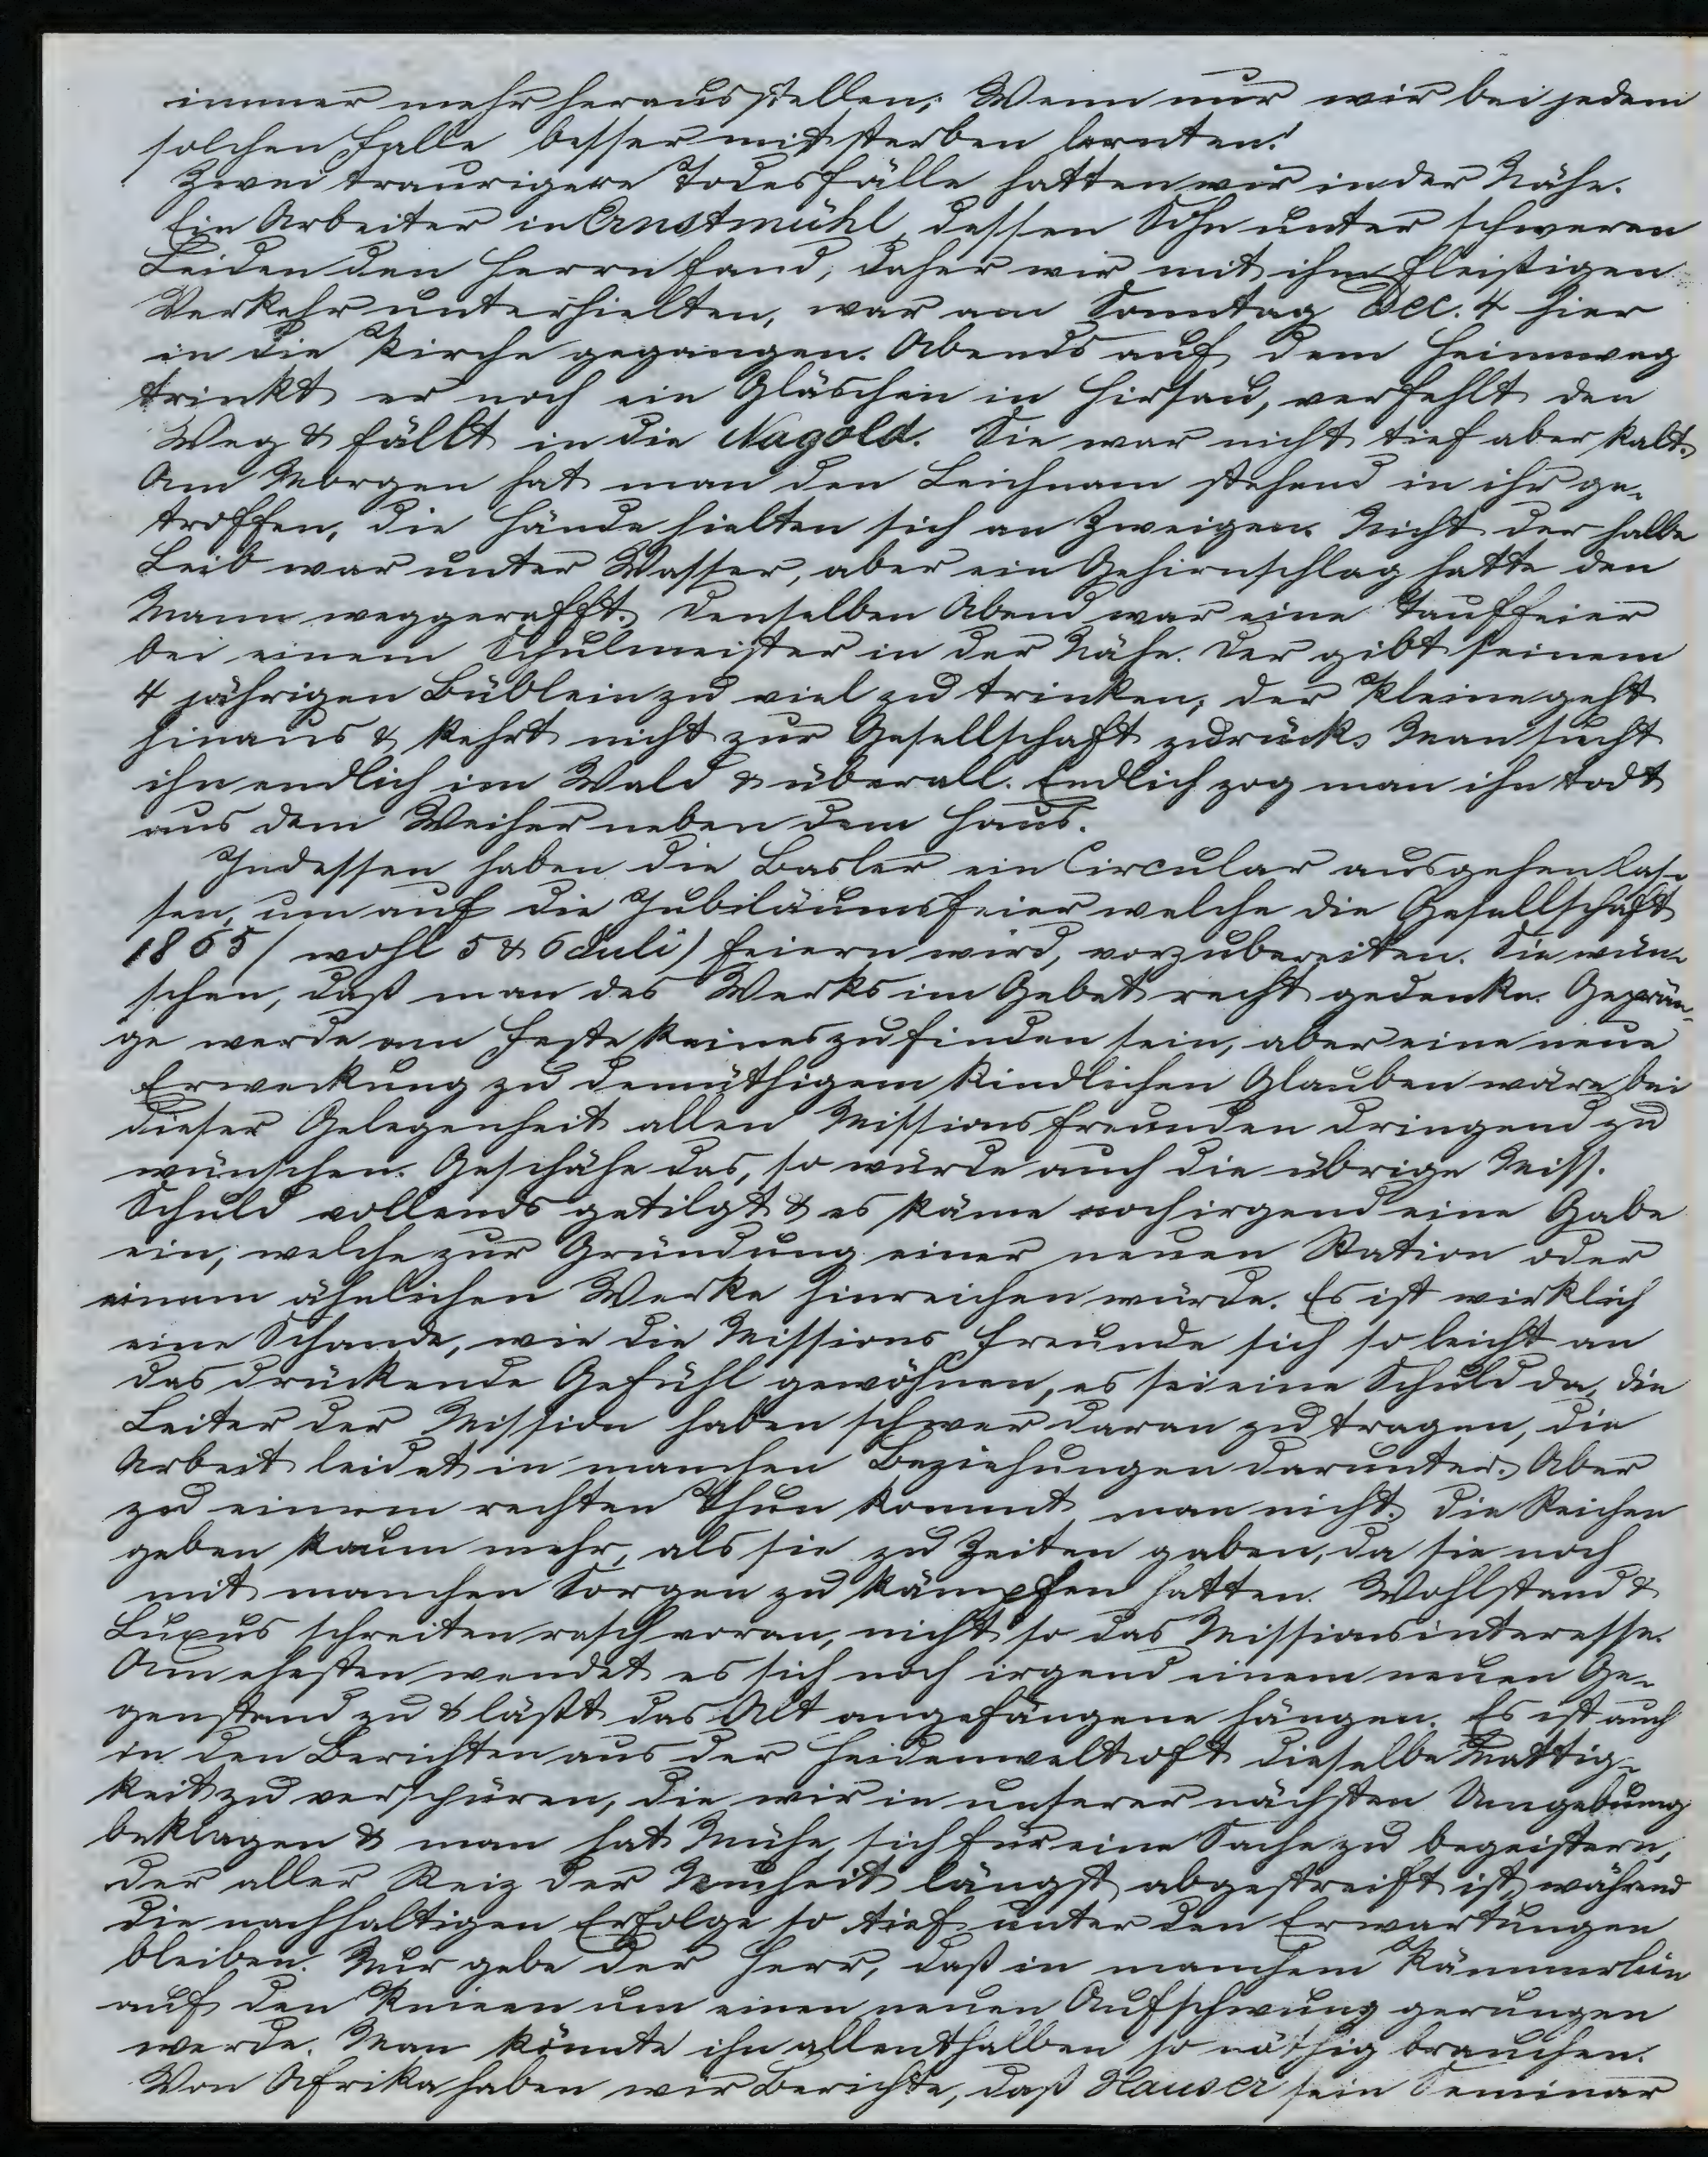 immer mehr herausstellen; Wenn nur wir bei jedem
solchen Falle besser mitsterben lernten!
Zwei traurigere Todesfälle hatten wir in der Nähe.
Ein Arbeiter in Ernstmühl, dessen Sohn unter schweren
Leiden den Herrn fand, daher wir mit ihm fleißigen
Verkehr unterhielten, war am Sonntag Dec. 4 hier
in die Kirche gegangen. Abends auf dem Heimweg
trinkt er noch ein Gläschen in Hirsau, verfehlt den
Weg & fällt in die Nagold. Sie war nicht tief aber kalt.
Am Morgen hat man den Leichnam stehend in ihr ge-
troffen, die Hände hielten sich an Zweigen. Nicht der halbe
Leib war unter Wasser, aber ein Gehirnschlag hatte den
Mann weggerafft. Denselben Abend war eine Tauffeier
bei einem Schulmeister in der Nähe. Der gibt seinem
4 jährigen Büblein zu viel zu trinken, der Kleine geht
hinaus & kehrt nicht zur Gesellschaft zurück. Man sucht
ihn endlich im Wald & überall. Endlich zog man ihn todt
aus dem Weiher neben dem Haus.
Indessen haben die Basler ein Circular ausgehen las-
sen, um auf die Jubiläumsfeier welche die Gesellschaft
1865 (wohl 5 & 6 Juli) feiern wird, vorzubereiten. Sie wün-
schen, daß man des Werks im Gebet recht gedenke. Geprän-
ge werde am Feste keines zu finden sein, aber eine neue
Erweckung zu demüthigem kindlichen Glauben wäre bei
dieser Gelegenheit allen Missionsfreunden dringend zu
wünschen. Geschähe das, so würde auch die übrige Miss.
Schuld vollends getilgt & es käme noch irgend eine Gabe
ein, welche zur Gründung einer neuen Station oder
einem ähnlichen Werke hinreichen würde. Es ist wirklich
eine Schande, wie die Missions freunde sich so leicht an
das drückende Gefühl gewöhnen, es sei eine Schuld da, die
Leiter der Mission haben schwer daran zu tragen, die
Arbeit leidet in manchen Beziehungen darunter. Aber
zu einem rechten Thun kommt man nicht. Die Reichen
geben kaum mehr, als sie zu Zeiten gaben, da sie noch
mit manchen Sorgen zu kämpfen hatten. Wohlstand &
Luxus schreiten rasch voran, nicht so das Missionsinteresse.
Am ehesten wendet es sich noch irgend einem neuen Ge-
genstand zu & läßt das Alt angefangene hängen. Es ist auch
in den Berichten aus der Heidenwelt oft dieselbe Mattig-
keit zu verspüren, die wir in unserer nächsten Umgebung
beklagen & man hat Mühe, sich für eine Sache zu begeistern,
der aller Reiz der Neuheit längst abgestreift ist, während
die nachhaltigen Erfolge so tief unter den Erwartungen
bleiben. Nur gebe der Herr, daß in manchem Kämmerlein
auf den Knieen um einen neuen Aufschwung gerungen
werde. Man könnte ihn allenthalben so nöthig brauchen.
Von Afrika haben wir Berichte, daß Hauser sein Seminar